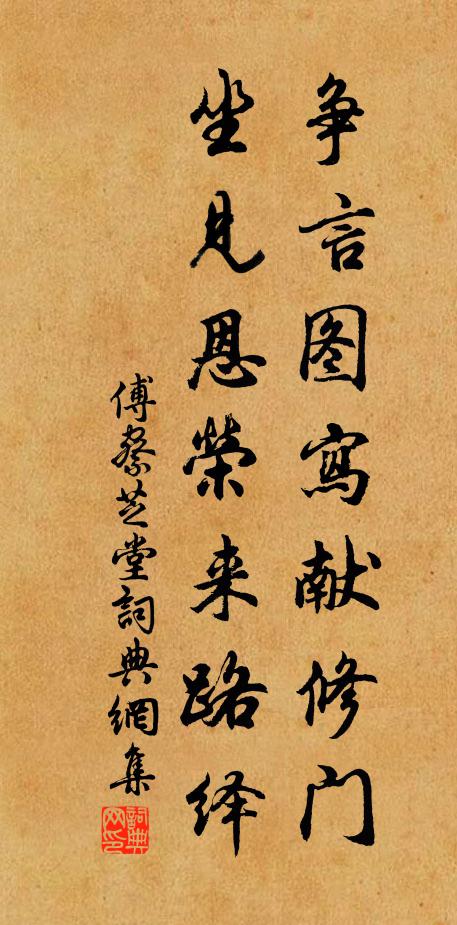 争言图寫献修门
坐见恩荣来路绎
傅察芝堂詞典網集
詞典网印